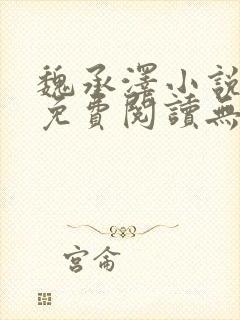 魏承澤小說
免費閱讀無
宮侖